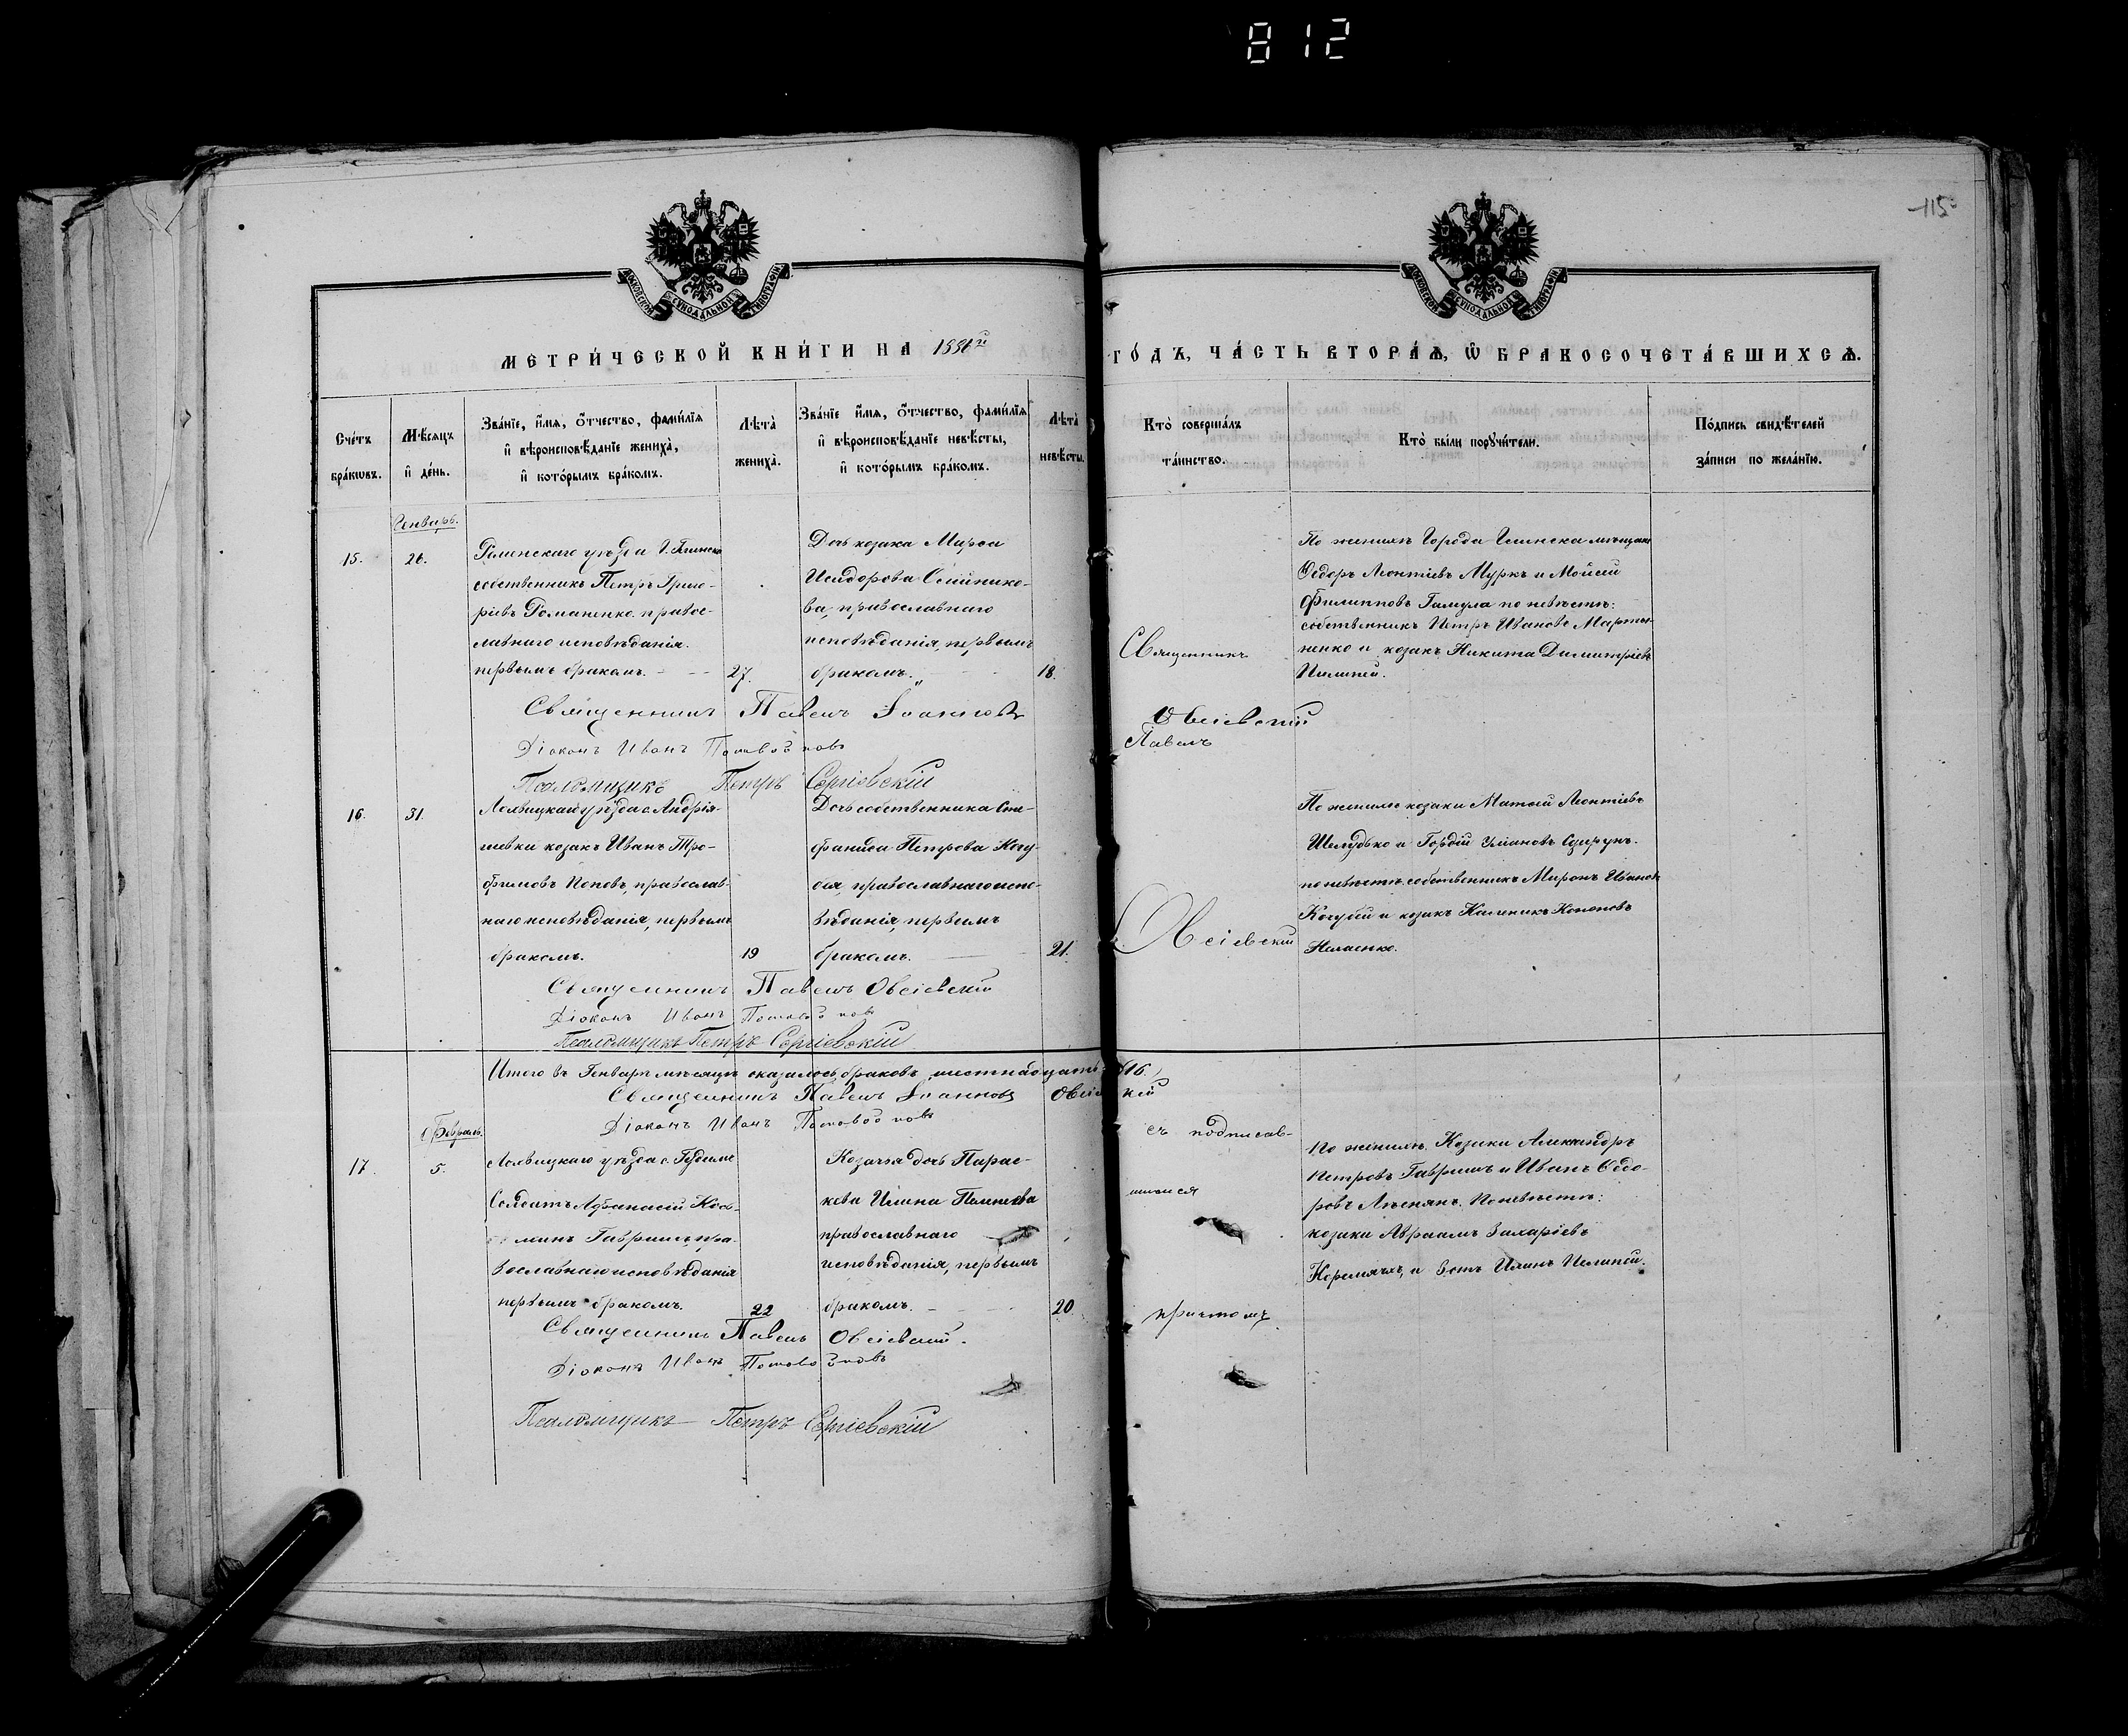 812
115
МОСКОВСКОЙ СѴНОДАЛЬНОЙ ТИПОГРАФІИ
МОСКОВСКОЙ СѴНОДАЛЬНОЙ ТИПОГРАФІИ
МЕТРИ́ЧЕСКОЙ КНИ́ГИ НА 1886й ГО́ДЪ, ЧА́СТЬ ВТОРА́Ѧ, Ѿ БРАКОСОЧЕТА́ВШИХСѦ.
Сче́тъ бра́кѡвъ.
Мѣ́сяцъ и҆ де́нь.
Зва́нїе, и҆́мя, ѻ҆́тчество, фами́лїя
и҆ вѣроисповѣ́данїе жениха̀,
и҆ кото́рымъ бра́комъ.
Лѣта̀ жениха̀.
Зва́нїе и҆́мя, ѻ҆́тчество, фами́лїя
и҆ вѣроисповѣ́данїе невѣ́сты,
и҆ кото́рымъ бра́комъ.
Лѣта̀ невѣ́сты.
Кто̀ соверша́лъ та́инство.
Кто̀ бы́ли порꙋчи́тели.
По́дпись свидѣ́телей за́писи по жела́нїю.
Генварь.
15. 26.
Роменскаго уѣзда
собственникъ Петръ Григо-
ріевъ Романенко правос-
лавнаго исповѣданія.
первымъ бракомъ. 27.
Дочь козака Марѳа
Исидорова
православнаго
исповѣданія, первымъ
бракомъ. 18.
Священникъ
Овсіевскій
Павелъ
По женихѣ Города мѣщане
Ѳедоръ Леонтіевъ Муркъ и Мойсей
Филипповъ Гамула по невѣстѣ:
собственникъ Петръ Ивановъ Марты-
ненко и козакъ Никита Димитріевъ
Пилипей.
Священникъ Павелъ Іоанновъ
Діаконъ Иванъ
Псаломщикъ Петръ Сергіевскій
16. 31.
Лохвицкаго уѣзда с. Андрія-
шевки козакъ Иванъ Тро-
фимовъ Поповъ, православ-
наго исповѣданія, первымъ
бракомъ. 19
Дочь собственника Сте-
фанида Петрова Кочу-
бея, православнаго испо-
вѣданія, первымъ
бракомъ. 21.
Овсіевскій
По женихѣ козаки Матѳей Леонтіевъ
Шелудько и Гордій
по невѣстѣ собственникъ Миронъ Ивановъ
Кочубей и козакъ Калиникъ Кононовъ
Священникъ Павелъ Овсіевскій
Діаконъ Иванъ
Псаломщикъ Петръ Сергіевскій
Итого въ Генварѣ мѣсяцѣ оказалось браковъ шестнадцать (16.)
Священникъ Павелъ Іоанновъ Овсіевскій
Діаконъ Иванъ
Февраль.
17. 5.
Лохвицкаго уѣзда с.
Солдатъ Афанасій Кос-
минъ Гавришъ, пра-
вославнаго исповѣданія
первымъ бракомъ. 22
Козачья дочь Парас-
кева Ильина Пилипева
православнаго
исповѣданія, первымъ
бракомъ. 20.
съ подписав-
шимся
причтомъ
По женихѣ Козаки Александръ
Петровъ Гавришъ и Иванъ Ѳедо-
ровъ По невѣстѣ:
козаки Авраамъ Захаріевъ
Священникъ Павелъ Овсіевскій.
Діаконъ Иванъ
Псаломщикъ Петръ Сергіевскій